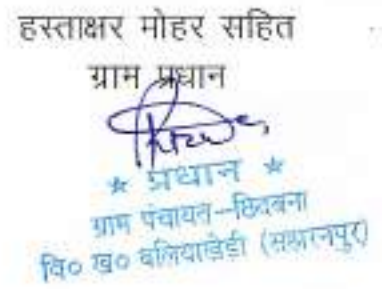 हस्ताक्षर मोहर सहित
ग्राम प्रधान
* प्रधान *
ग्राम पंचायत-छिदबना
वि० ख० बलियाखेड़ी (सहारनपुर)